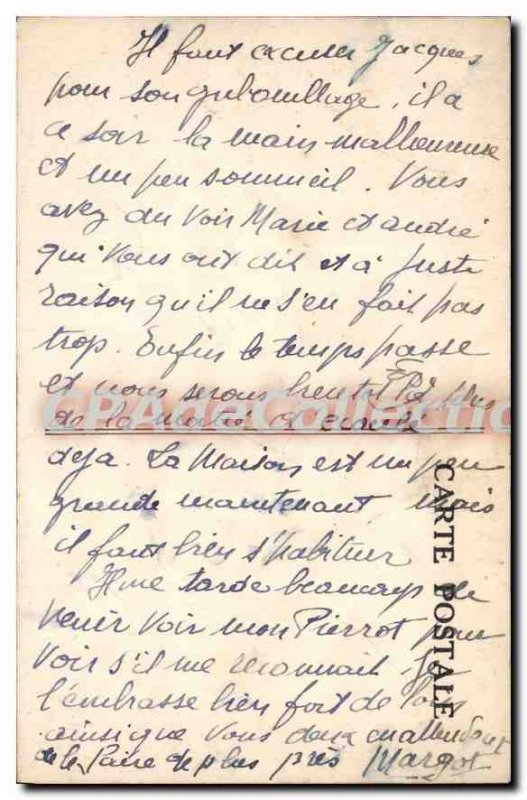 Il faut excuser Jacques
pour son gribouillage, il a
ce soir la main malheureuse
et un peu sommeil. Vous
avez du voir Marie et andré
qui vous ont dit et à juste
raison qu'il ne s'en fait pas
trop. Enfin le temps passe
et nous serons bientôt plus
de la moitié
déja. La Maison est un peu
grande maintenant mais
il faut bien s'habituer
Il me tarde beaucoup de
venir voir mon Pierrot pour
voir s'il me reconnait. Je
l'embrasse bien fort de loin
ainsi que vous deux en attendant
de le faire de plus près Margot
CPADeCollection
CARTE POSTALE